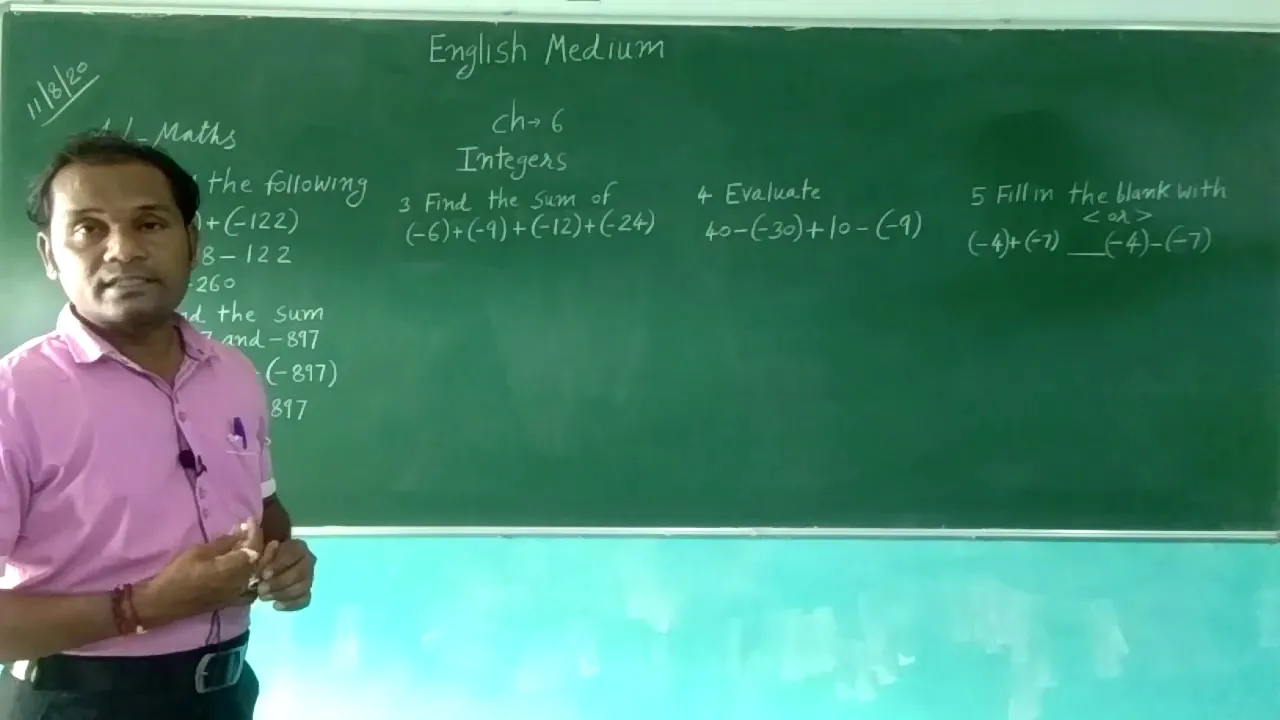 English Medium
11/8/20
Maths
ch→6
Integers
the following
+(-122)
8-122
-260
the sum
and -897
(-897)
897
3 Find the sum of
(-6)+(-9)+(-12)+(-24)
4 Evaluate
40-(-30)+10-(-9)
5 Fill in the blank with
< or >
(-4)+(-7) ___(-4)-(-7)